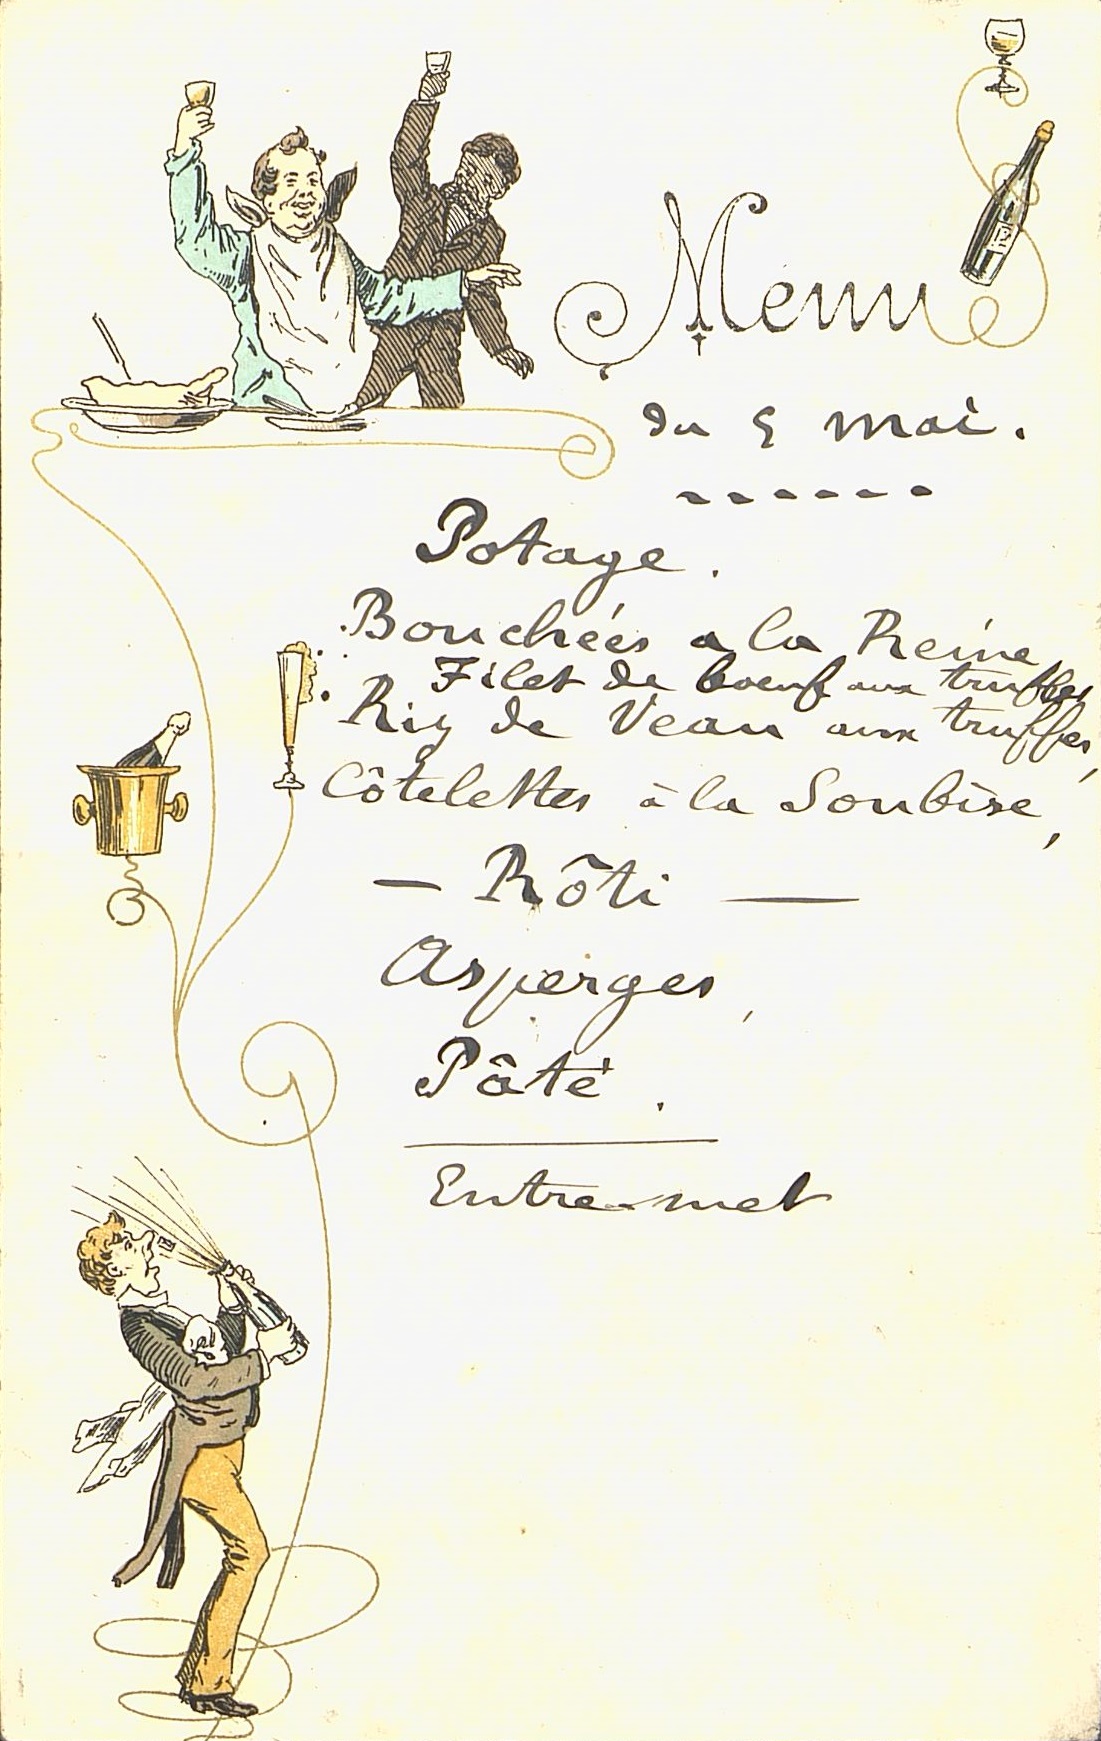 Menu
du 5 mai.
Potage.
Bouchées a la Reine
Filet de boeuf aux truffes
Riz de Veau aux truffes,
Côtelettes à la Soubise,
— Rôti —
Asperges,
Pâté.
Entre-met